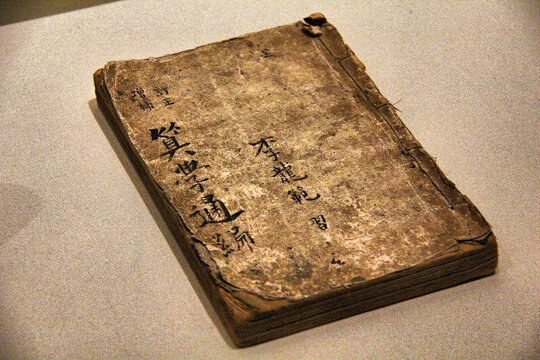 李龍範習
訂正
增補
算学通編